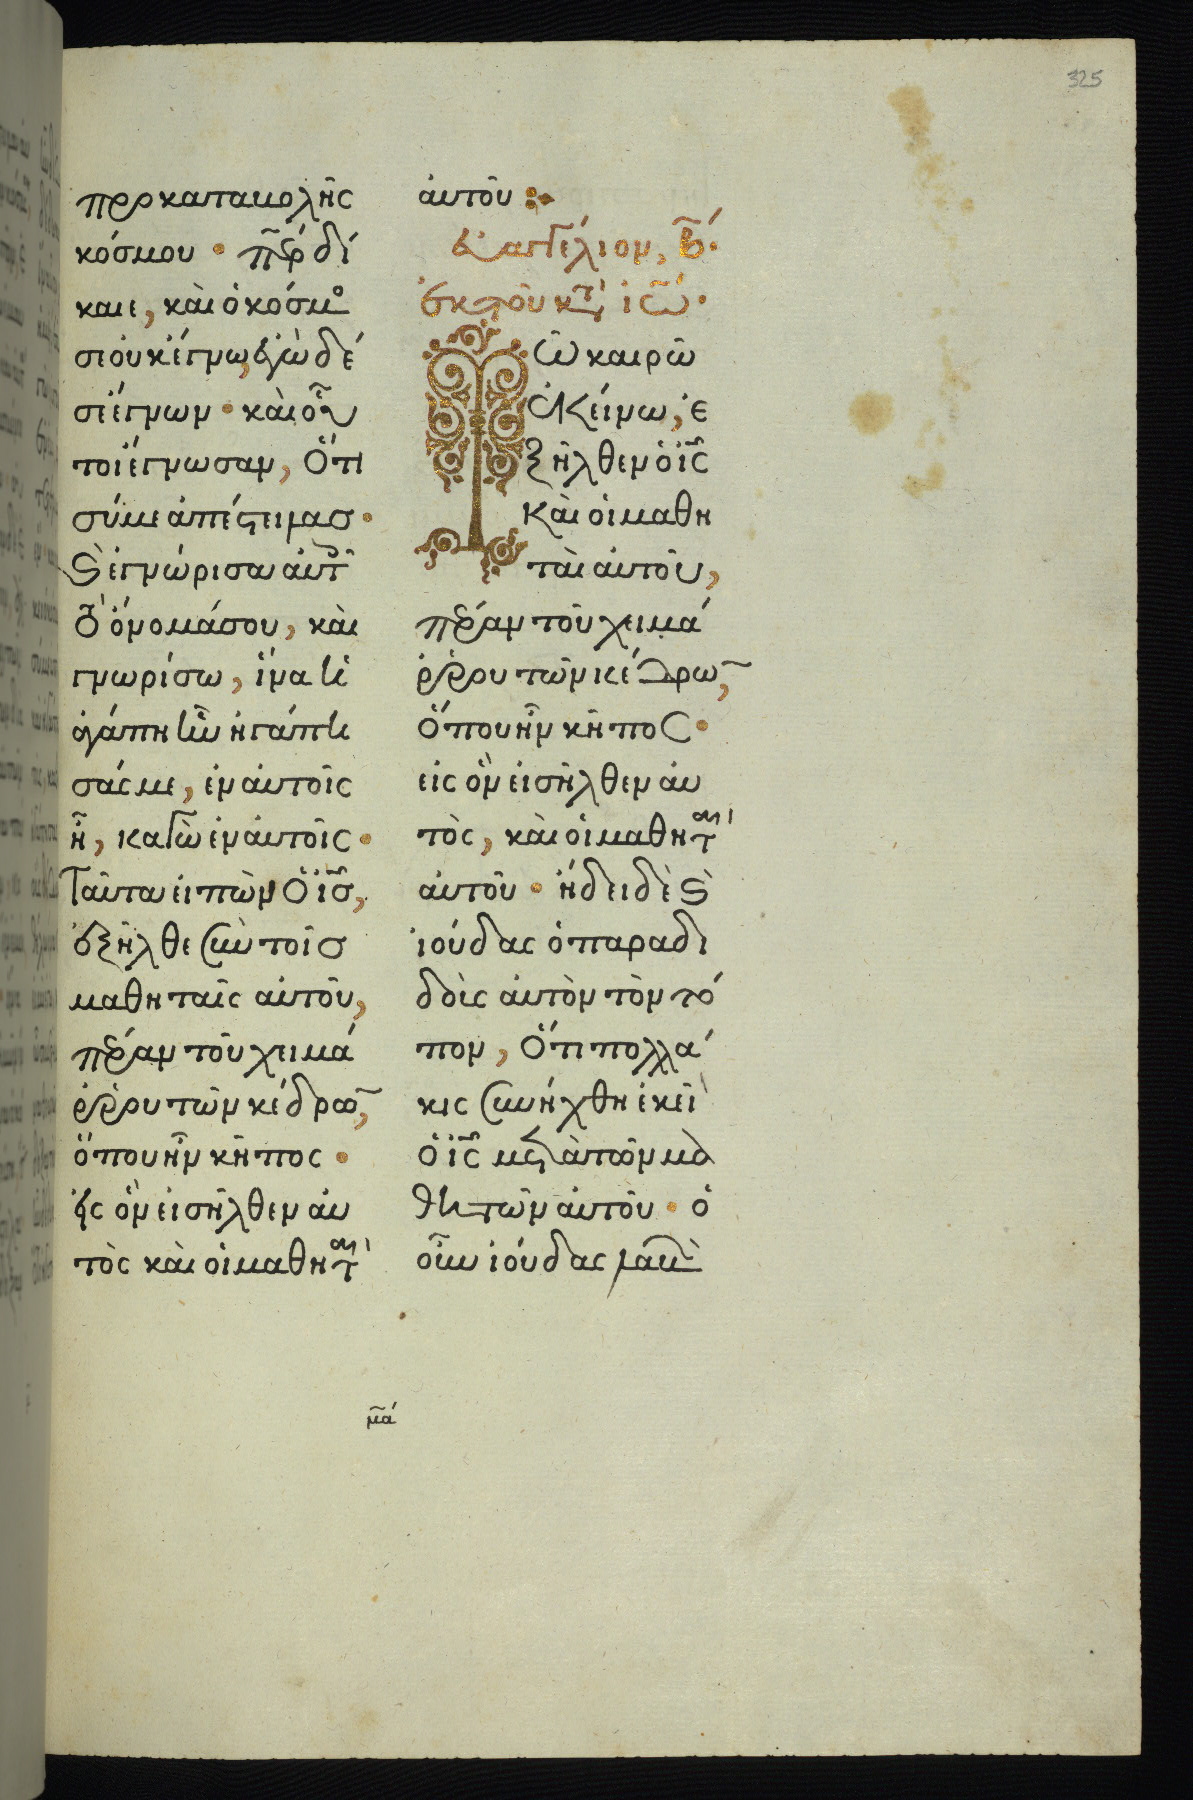 325
προ καταβολῆς
κόσμου · πῆρ δί
καιε, καὶ ὁ κόσμο
σε οὐκ ἔγνω, ἐγὼ δέ
σε ἔγνων · καὶ οὗ
τοι ἔγνωσαν, ὅτι
σύ με ἀπέστειλας ·
καὶ ἐγνώρισα αὐτοῖ
τὸ ὄνομά σου, καὶ
γνωρίσω, ἵνα ἡ
ἀγάπη ἣν ἠγάπη
σάς με, ἐν αὐτοῖς
ἦ, καγὼ ἐν αὐτοῖς ·
Ταῦτα εἰπὼν ὁ ἰς,
ἐξῆλθε σὺν τοῖς
μαθηταῖς αὐτοῦ,
πέραν τοῦ χειμά
ῤῥου τῶν κέδρω,
ὅπου ἦν κῆπος ·
εἰς ὃν εἰσῆλθεν αὐ
τὸς καὶ οἱ μαθηταὶ
αὐτοῦ :·
Εὐαγγέλιον, β̅·
ἐκ τοῦ κτ ἰω·
Τῶ καιρῶ
ἐκείνω, ἐ
ξῆλθεν ὁ ἰς
καὶ οἱ μαθη
ταὶ αὐτοῦ,
πέραν τοῦ χειμά
ῤῥου τῶν κέδρω,
ὅπου ἦν κῆπος ·
εἰς ὃν εἰσῆλθεν αὐ
τὸς, καὶ οἱ μαθηταὶ
αὐτοῦ · ἤδει δὲ καὶ
ἰούδας ὁ παραδι
δοὺς αὐτὸν τὸν τό
πον, ὅτι πολλά
κις συνήχθη ἐκεῖ
ὁ ἰς μετὰ τῶν μα
θητῶν αὐτοῦ · ὁ
οὖν ἰούδας λαβὼ
μα